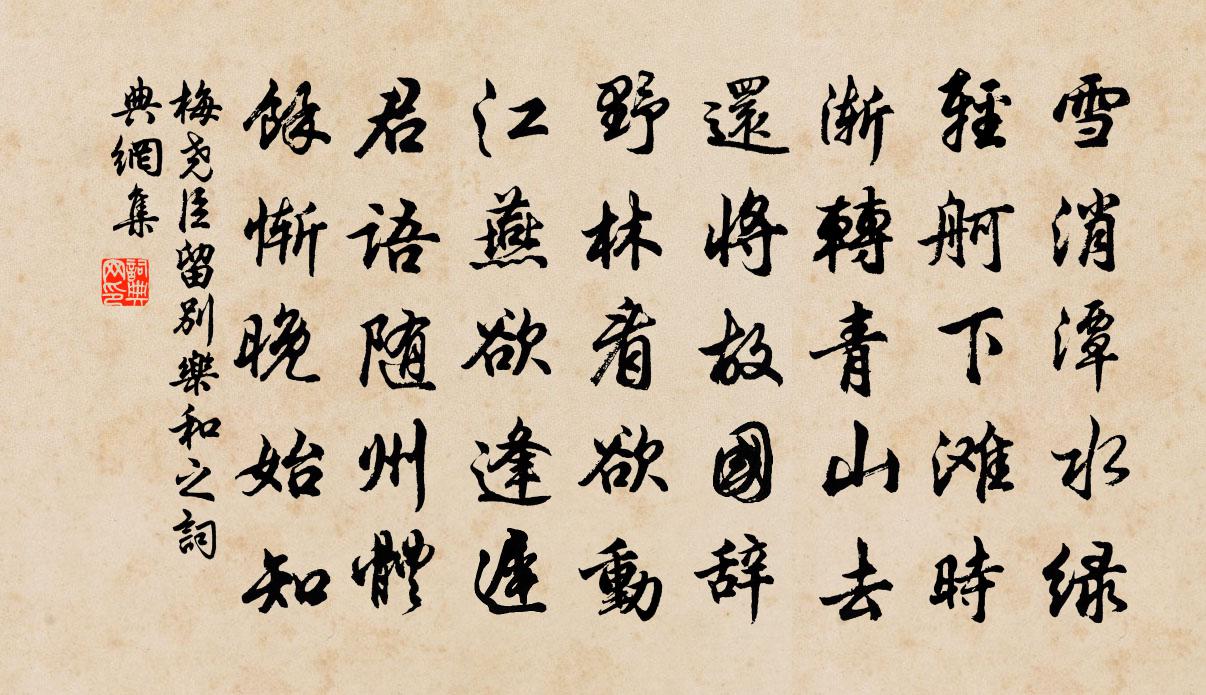 雪消潭水緑
輕舸下滩時
漸轉青山去
還將故國辞
野林看欲動
江燕欲逢遲
君語随州體
餘慚晚始知
梅尧臣留别樂和之詞
典網集
詞典
网印